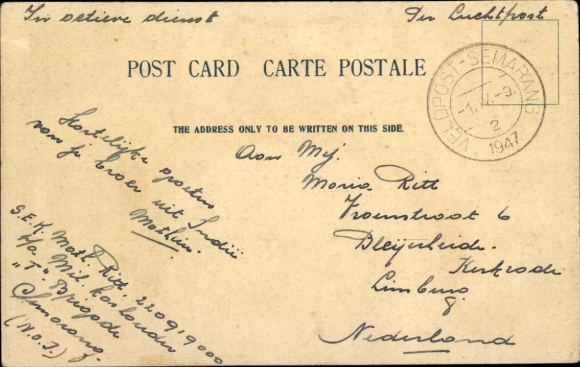 In actieve dienst
Per Luchtpost
POST CARD CARTE POSTALE
VELDPOST-SEMARANG
2
1947
THE ADDRESS ONLY TO BE WRITTEN ON THIS SIDE.
Hartelijke groeten
van je broer uit Indië
Mathieu.
Aan Mej.
Maria Ritt
Vroenstraat 6
Bleijerheide.
Kerkrade
Limburg
Nederland
S.E.K. Math. Ritt. 220919000
p/a Mil. Postorder
"T" Brigade
Semarang.
(N.O.I.)